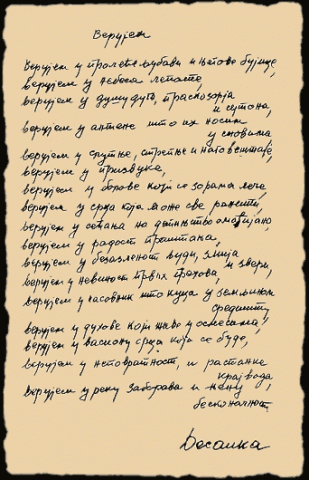 Верујем
верујем у пролеће љубави и његове бујице,
верујем у небеса лепоте,
верујем у душу дуге, праскозорја
и сутона,
верујем у антене што их носим
у сновима
верујем у слутње, стрепње и наговештаје,
верујем у празвуке,
верујем у борове који са зорама
верујем у срца која може све ранити,
верујем у сећања на детињство
верујем у радост праштања,
верујем у безазленост људи, змија
и звери,
верујем у невиност првих грехова,
верујем у часовник што куца у земљином
средишту
верујем у духове који живе у осмесима,
верујем у васиону срца која се буде,
верујем у неповратност, и растанке
крај вода,
верујем у реку заборава и њену
бесконачност.
Десанка